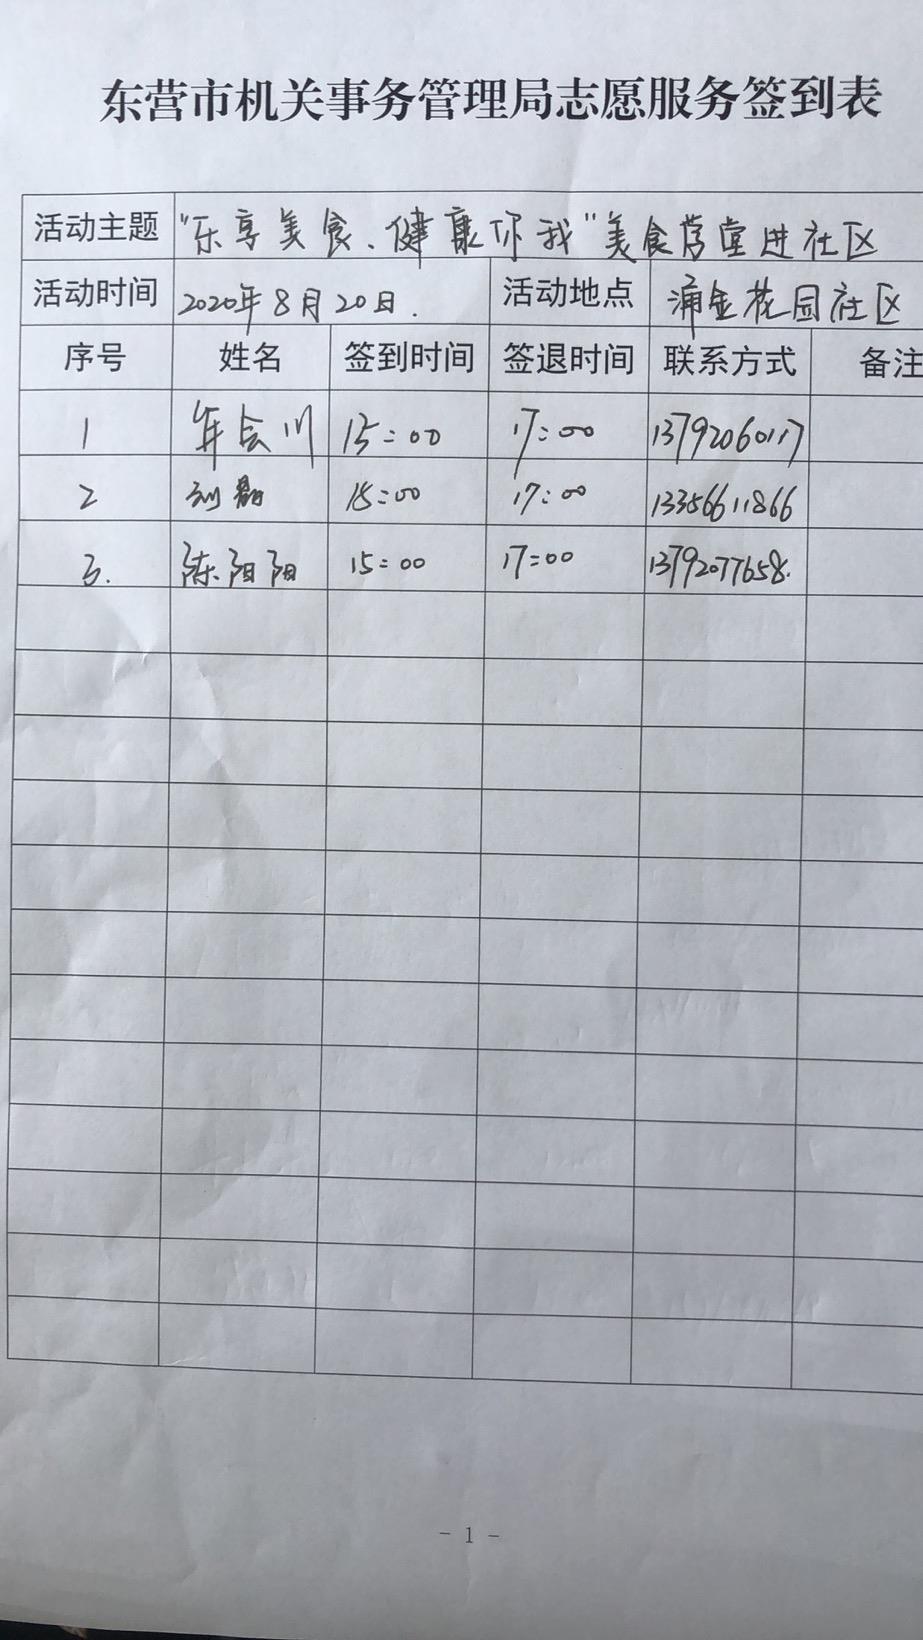 东营市机关事务管理局志愿服务签到表
活动主题 "乐享美食、健康你我"美食营堂进社区
活动时间 2020年8月20日. 活动地点 涌金花园社区
序号 姓名 签到时间 签退时间 联系方式 备注
1 年会川 15:00 17:00 13792060117
2 刘 15:00 17:00 13356611866
3. 陈阳阳 15:00 17:00 13792077658.
- 1 -